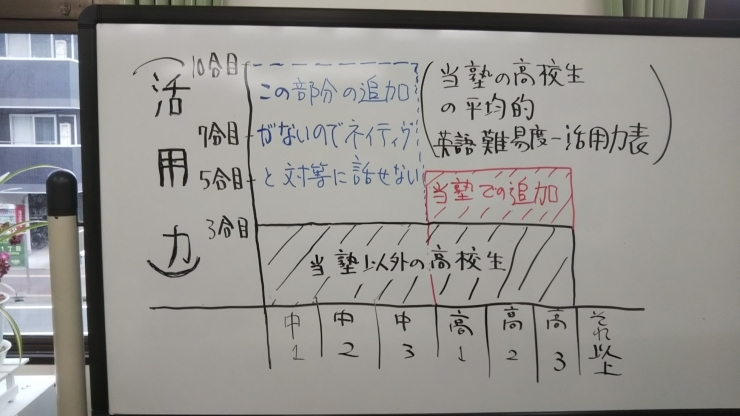 (活用力)
10合目
7合目
5合目
3合目
この部分の追加
がないのでネイティヴ
と対等に話せない
(当塾の高校生
の平均的
英語難易度-活用力表)
当塾での追加
当塾以外の高校生
中1
中2
中3
高1
高2
高3
それ以上